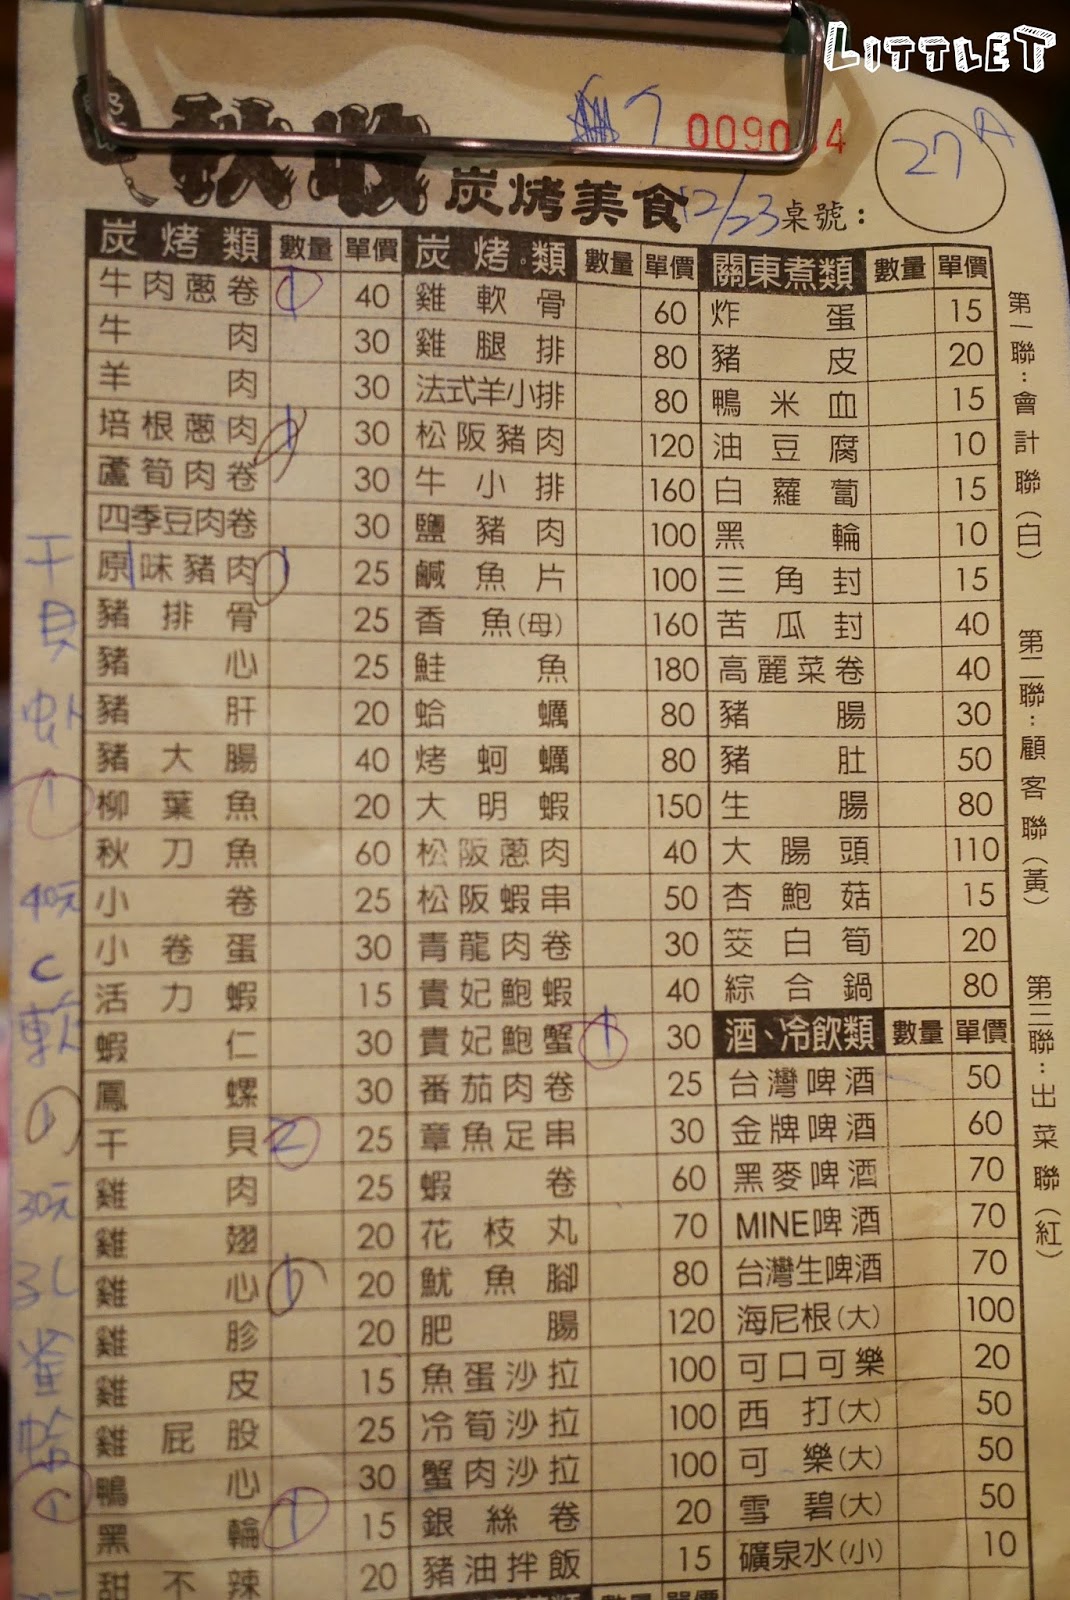 LITTLET
秋收 炭烤美食
7 0090 4
12/23 桌號： 27 A
炭烤類 數量 單價
牛肉蔥卷 1 40
牛肉 30
羊肉 30
培根蔥肉 1 30
蘆筍肉卷 30
四季豆肉卷 30
原味豬肉 1 25
豬排骨 25
豬心 25
豬肝 20
豬大腸 40
柳葉魚 20
秋刀魚 60
小卷 25
小卷蛋 30
活力蝦 15
蝦仁 30
鳳螺 30
干貝 2 25
雞肉 25
雞翅 20
雞心 1 20
雞胗 20
雞皮 15
雞屁股 25
鴨心 30
黑輪 1 15
甜不辣 20
炭烤類 數量 單價
雞軟骨 60
雞腿排 80
法式羊小排 80
松阪豬肉 120
牛小排 160
鹽豬肉 100
鹹魚片 100
香魚(母) 160
鮭魚 180
蛤蠣 80
烤蚵蠣 80
大明蝦 150
松阪蔥肉 40
松阪蝦串 50
青龍肉卷 30
貴妃鮑蝦 40
貴妃鮑蟹 1 30
番茄肉卷 25
章魚足串 30
蝦卷 60
花枝丸 70
魷魚腳 80
肥腸 120
魚蛋沙拉 100
冷筍沙拉 100
蟹肉沙拉 100
銀絲卷 20
豬油拌飯 15
數量 單價
關東煮類 數量 單價
炸蛋 15
豬皮 20
鴨米血 15
油豆腐 10
白蘿蔔 15
黑輪 10
三角封 15
苦瓜封 40
高麗菜卷 40
豬腸 30
豬肚 50
生腸 80
大腸頭 110
杏鮑菇 15
筊白筍 20
綜合鍋 80
酒、冷飲類 數量 單價
台灣啤酒 50
金牌啤酒 60
黑麥啤酒 70
MINE啤酒 70
台灣生啤酒 70
海尼根(大) 100
可口可樂 20
西打(大) 50
可樂(大) 50
雪碧(大) 50
礦泉水(小) 10
第一聯：會計聯(白)
第二聯：顧客聯(黃)
第三聯：出菜聯(紅)
干貝
1
40元
C
軟
1
30元
蛋
1